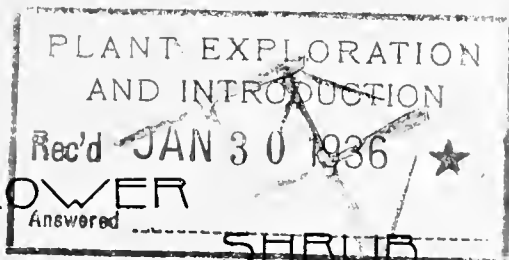 PLANT EXPLORATION
AND INTRODUCTION
Rec'd JAN 30 1936
OWER
Answered
SHRUB